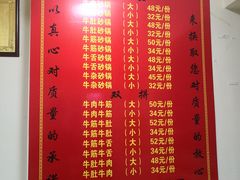 以真心对质量的承诺
来换取您对质量的放心
牛肚砂锅（大）48元/份
牛肚砂锅（小）32元/份
牛筋砂锅（大）50元/份
牛筋砂锅（小）34元/份
牛舌砂锅（大）48元/份
牛舌砂锅（小）34元/份
牛杂砂锅（大）45元/份
牛杂砂锅（小）32元/份
双拼
牛肉牛筋（大）50元/份
牛肉牛筋（小）34元/份
牛筋牛肚（大）52元/份
牛筋牛肚（小）34元/份
牛筋牛舌（大）52元/份
牛筋牛舌（小）34元/份
牛肚牛肉（大）48元/份
牛肚牛肉（小）34元/份